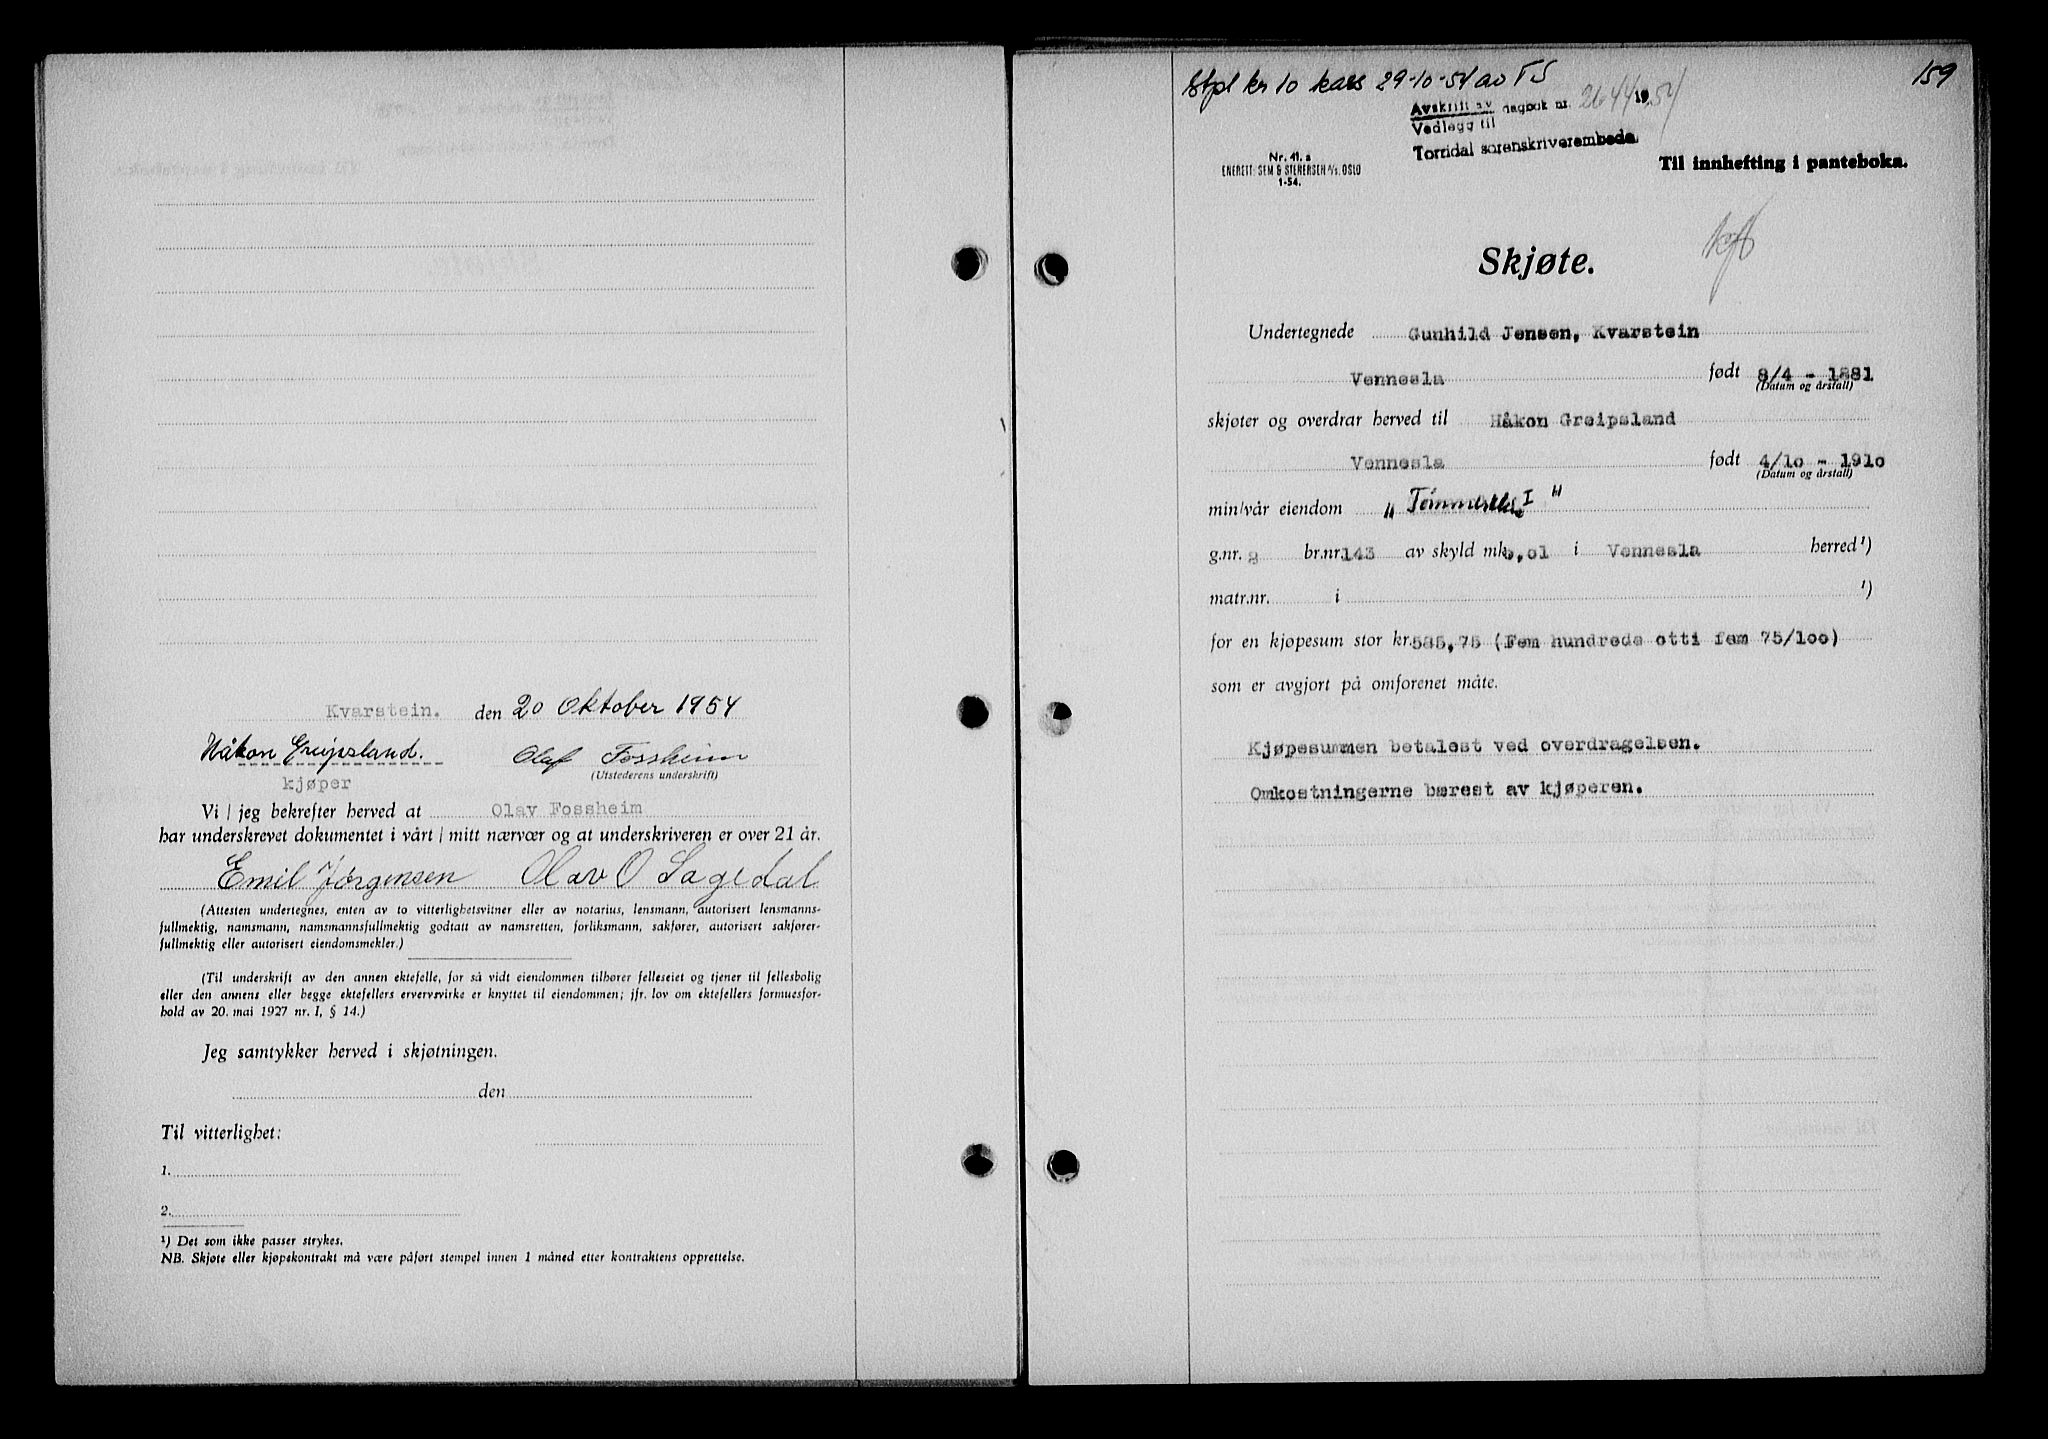 Kvarstein. den 20 Oktober 1954
Håkon Greipsland. Olaf Fossheim
(Utstederens underskrift)
kjøper
Vi / jeg bekrefter herved at Olav Fossheim
har underskrevet dokumentet i vårt / mitt nærvær og at underskriveren er over 21 år.
Emil Jørgensen Olav O Sagedal
(Attesten undertegnes, enten av to vitterlighetsvitner eller av notarius, lensmann, autorisert lensmanns-
fullmektig, namsmann, namsmannsfullmektig godtatt av namsretten, forliksmann, sakfører, autorisert sakfører-
fullmektig eller autorisert eiendomsmekler.)
(Til underskrift av den annen ektefelle, for så vidt eiendommen tilhører felleseiet og tjener til fellesbolig
eller den annens eller begge ektefellers ervervsvirke er knyttet til eiendommen; jfr. lov om ektefellers formuesfor-
hold av 20. mai 1927 nr. 1, § 14.)
Jeg samtykker herved i skjøtningen.
den
Til vitterlighet:
1.
2.
¹) Det som ikke passer strykes.
NB. Skjøte eller kjøpekontrakt må være påført stempel innen 1 måned etter kontraktens opprettelse.
159
Stpl kr 10 kass 29-10-54 av TS
Avskrift av dagbok nr. 2644 1954
Vedlegg til
Torridal sorenskriverembede
Nr. 41. a
ENERETT: SEM & STENERSEN A/S, OSLO
1-54.
Til innhefting i panteboka.
Skjøte.
Undertegnede Gunhild Jensen, Kvarstein
Vennesla født 8/4 - 1881
(Datum og årstall)
skjøter og overdrar herved til Håkon Greipsland
Vennesla født 4/10 - 1910
(Datum og årstall)
min/vår eiendom I
g.nr. br.nr. 143 av skyld mk. 0,01 i Vennesla herred ¹)
matr.nr. i ¹)
for en kjøpesum stor kr. 585,75 (Fem hundrede otti fem 75/100)
som er avgjort på omforenet måte.
Kjøpesummen betalest ved overdragelsen.
Omkostningerne bærest av kjøperen.